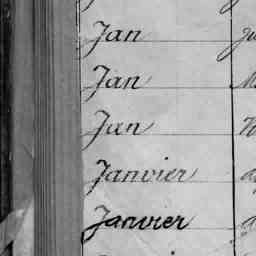 Jan
Jan
Jan
Janvier
Janvier